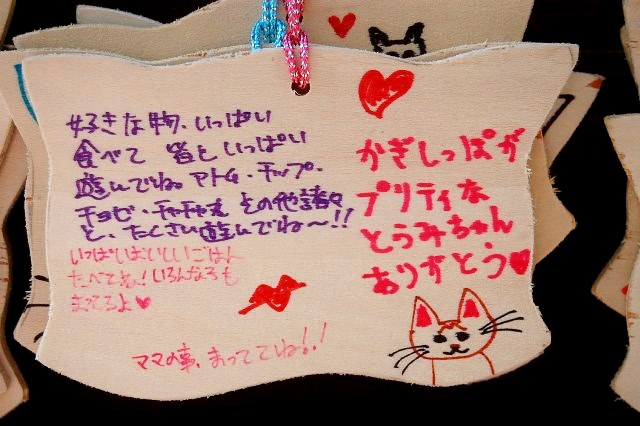 好きな物、いっぱい
食べて 皆と いっぱい
遊んでね。アトム・チップ・
チョビ・チャチャ丸 その他諸々
と、たくさい遊んでね〜!!
いっぱいおいしいごはん
たべてね!いろんな子も
まってるよ♥
ママの事、まっててね!!
かぎしっぽが
プリティな
とうみちゃん
ありがとう♥